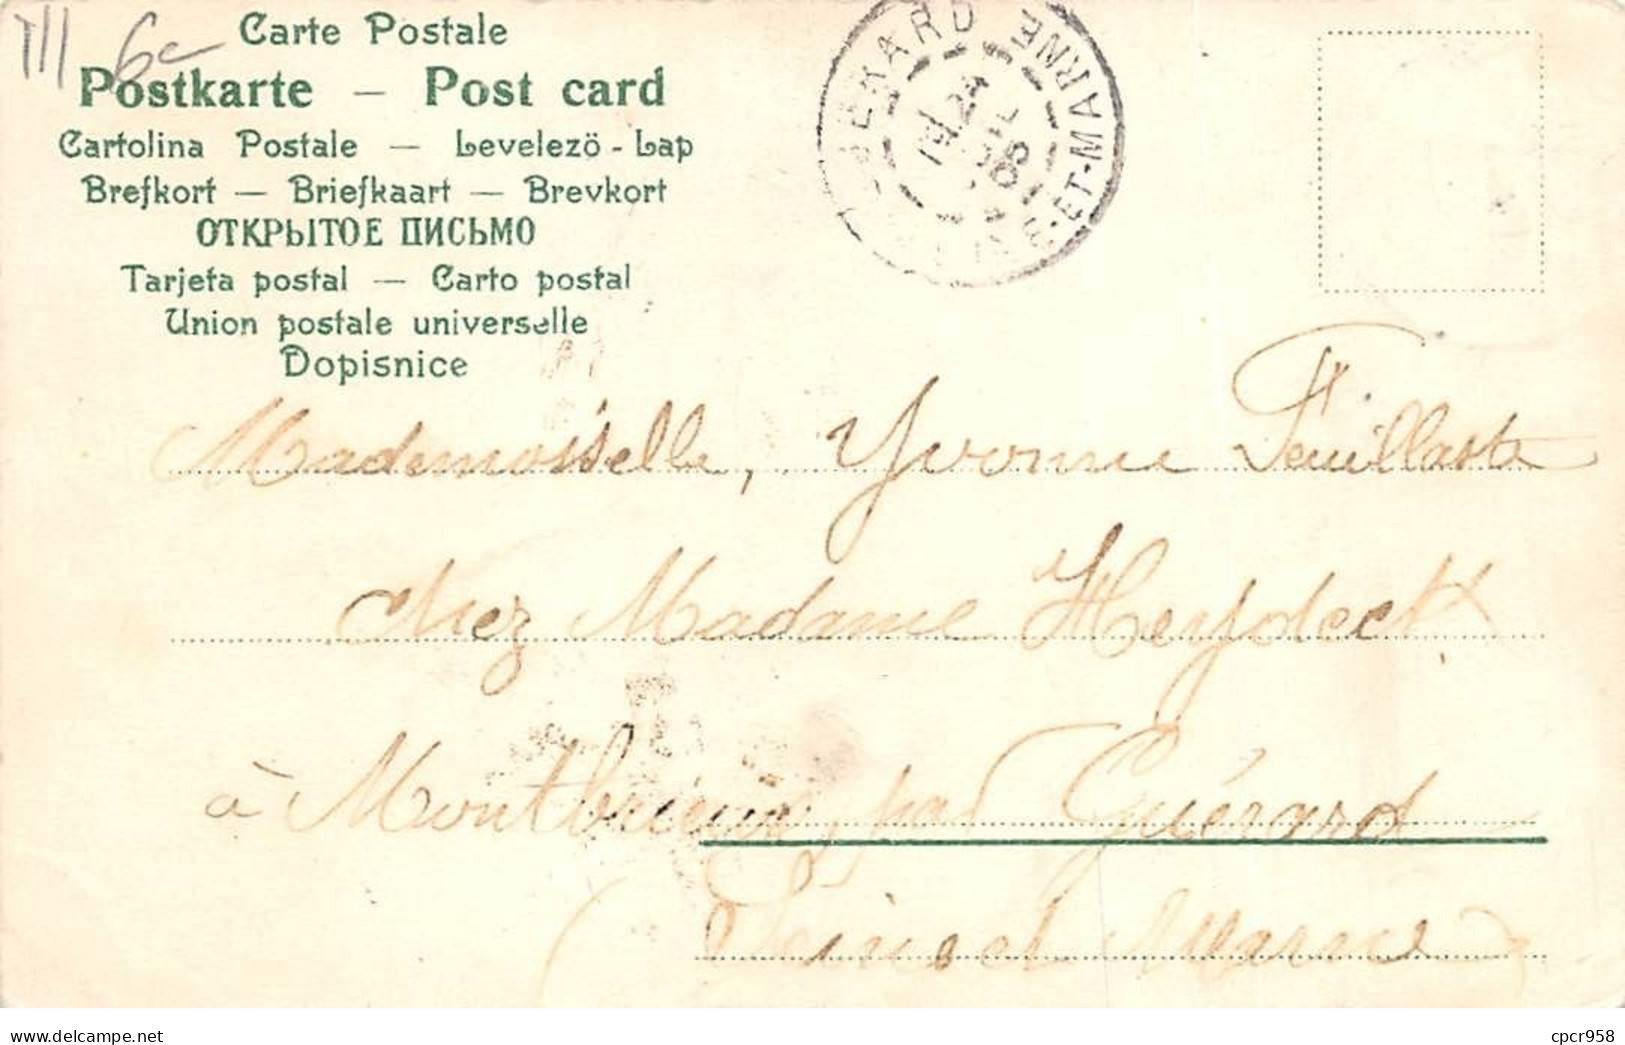 III 6e
Carte Postale
Postkarte – Post card
Cartolina Postale — Levelezö-Lap
Brefkort — Briefkaart — Brevkort
ОТКРЫТОЕ ПИСЬМО
Tarjeta postal — Carto postal
Union postale universelle
Dopisnice
ET-MARNE
Mademoiselle, Yvonne
chez Madame Heydeck
à Montbrieux, par Guérard
(Seine et Marne)
www.delcampe.net
cpcr958